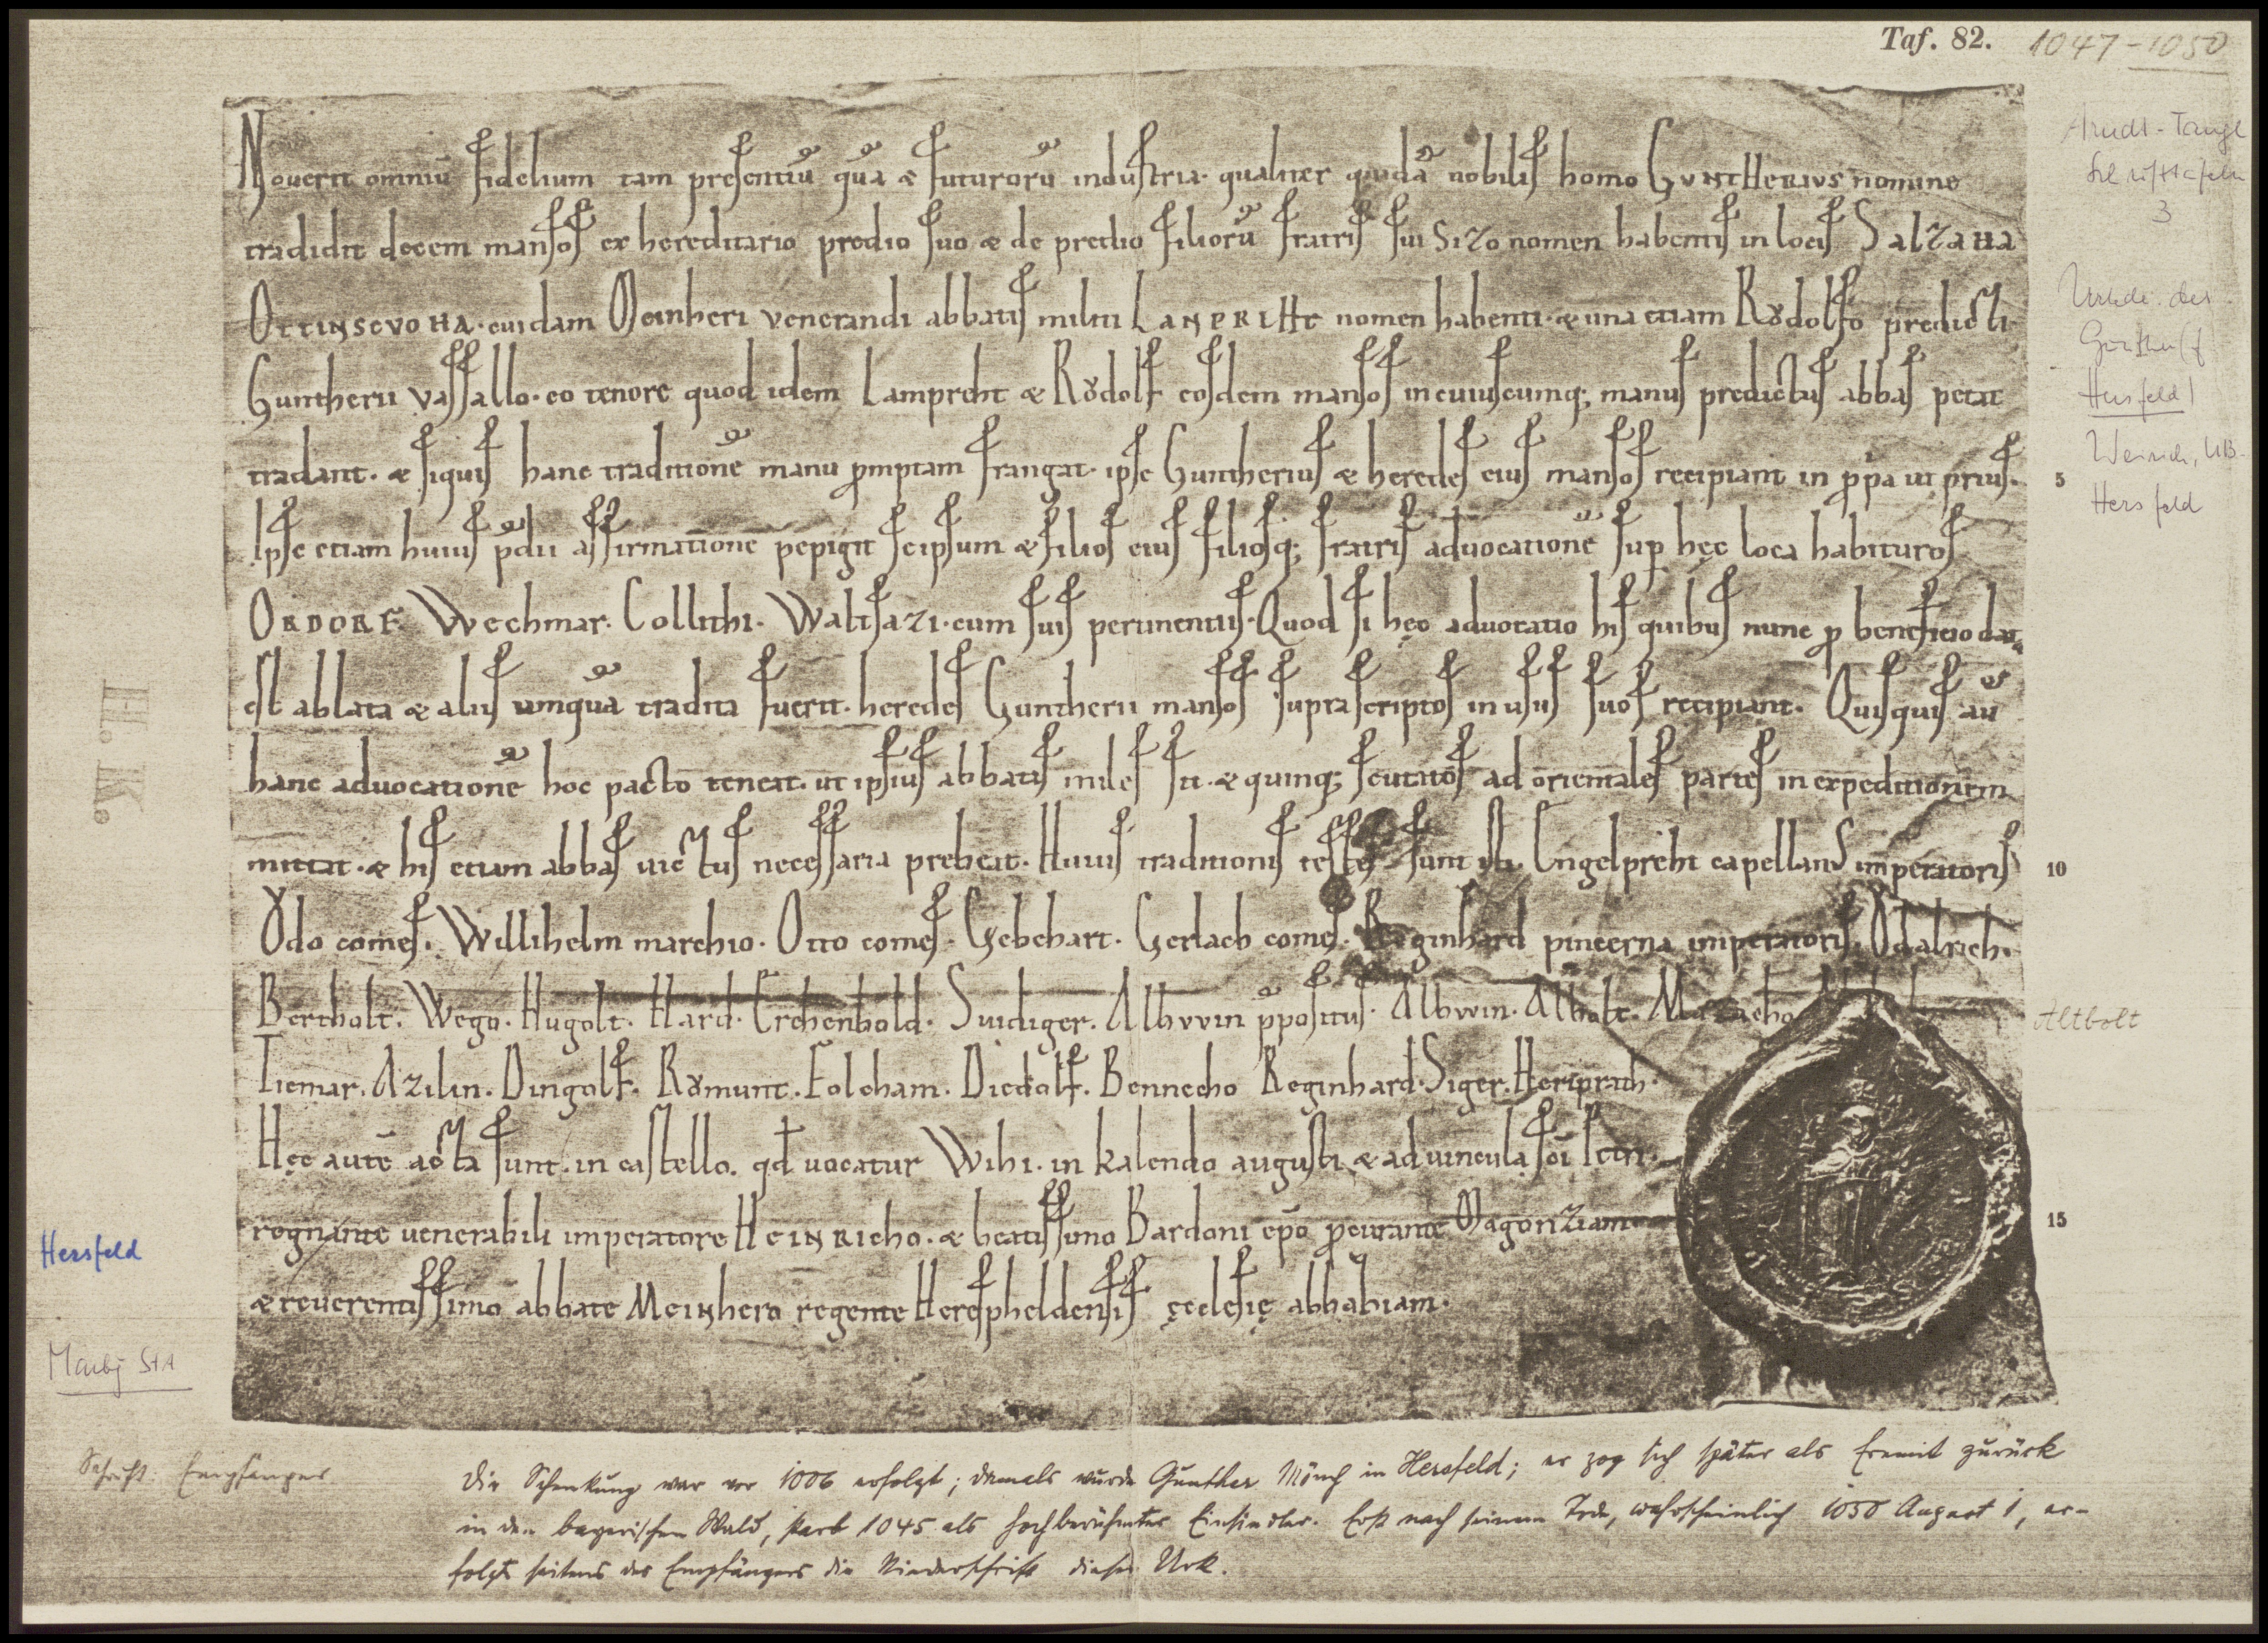 Taf. 82. 1047-1050
Arndt-Tangl
Schrifttafeln
3
Urkde. des
Gunther (f
Hersfeld)
Weirich, UB.
Hersfeld
Nouerit omniū fidelium tam presentiū quā & futurorū industria· qualiter quidā nobilis homo GUNTHERIUS nomine
tradidit decem mansos ex hereditario predio suo & de predio filiorū fratris sui Sizo nomen habentis in locis SalzaHa
OTTINSCVOHA· cuidam Meinheri venerandi abbatis militi LANPRIHT nomen habenti· & una etiam Rŏdolfo predicti·
Guntherii vassallo· eo tenore quod idem Lampreht & Rŏdolf eosdem mansos in cuiuscumq; manus predictus abbas petat
tradant· & siquis hanc traditionē manu p̄mptam frangat· ipse Guntherius & heredes eius mansos recipiant in p̄pa ut prius· 5
Ipse etiam huius p̄dii affirmatione pepigit seipsum & filios eius filiosq; fratris aduocationē sup hęc loca habituros
ORDORF· Wechmar· Collithi· Waltsazi· cum suis pertinentiis· Quod si hęc aduocatio his quibus nunc p beneficio data
est ablata & aliis umquā tradita fuerit· heredes Guntherii mansos suprascriptos in usus suos recipiant· Quisquis aū
hanc aduocationē hoc pacto teneat· ut ipsius abbatis miles sit· & quinq; scutatos ad orientales partes in expeditionem
mittat· & his etiam abbas uictus necessaria prebeat· Huius traditionis testes sunt isti· Engelpreht capellanus imperatoris 10
Ŏdo comes· Willihelm marchio· Otto comes· Gebehart· Gerlach comes· Reginhard pincerna imperatoris· Ŏdalrich·
Bertholt· Wego· Hugolt· Hard· Erchenbold· Suidiger· Albvvin p̄positus· Albwin· Altbolt· Mazacho
Altbolt
Tiemar· Azilin· Dingolf· Rŏmunt· Folcham· Diedolf· Bennecho Reginhard· Siger· Heriprath·
Hęc autē acta sunt· in castello· qđ uocatur Wihi· in kalendo augusti & ad uincula sc̄i Petri·
regnante uenerabili imperatore HEINRICHO· & beatissimo Bardoni ep̄o p̄curante Magonziam 15
& reuerentissimo abbate MEINHERO regente Heresphelḍensis ęcclesię abbatiam·
H.K.
Hersfeld
Marbg StA
Schrift: Empfänger
Die Schenkung war vor 1006 erfolgt; damals wurde Gunther Mönch in Hersfeld; er zog sich später als Eremit zurück
in den bayerischen Wald, starb 1045 als hochberühmter Einsiedler. Erst nach seinem Tode, wahrscheinlich 1050 August 1, er-
folgte seitens des Empfängers die Niederschrift dieser Urk.